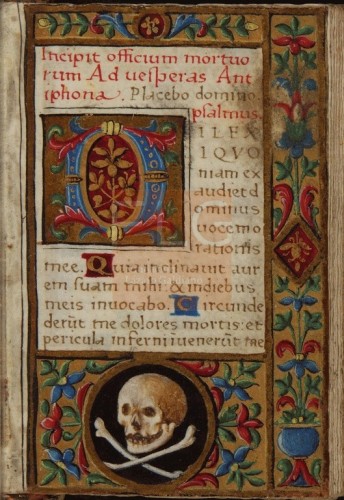 Incipit officium mortuo
rum Ad vesperas Ant
iphona. Placebo domino
psalmus
DILEX
I QVO
niam ex
audiet d
ominus
vocem o
rationis
mee. Quia inclinavit aur
em suam mihi: & in diebus
meis invocabo. Circunde
derūt me dolores mortis: et
pericula inferni īvenerūt me